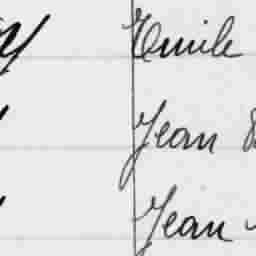 Emile
Jean
Jean